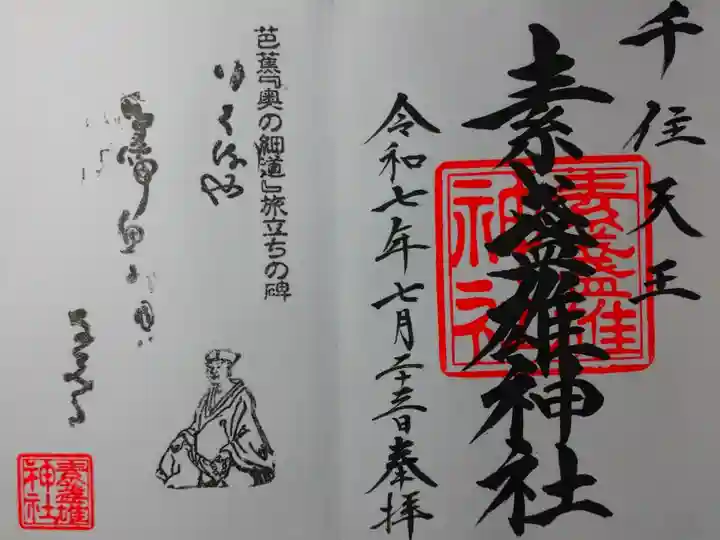 千住天王
素盞雄神社
素盞雄神社
令和七年七月二十三日奉拝
芭蕉『奥の細道』旅立ちの碑
行く春や
鳥啼魚の目は
なみだ
素盞雄神社